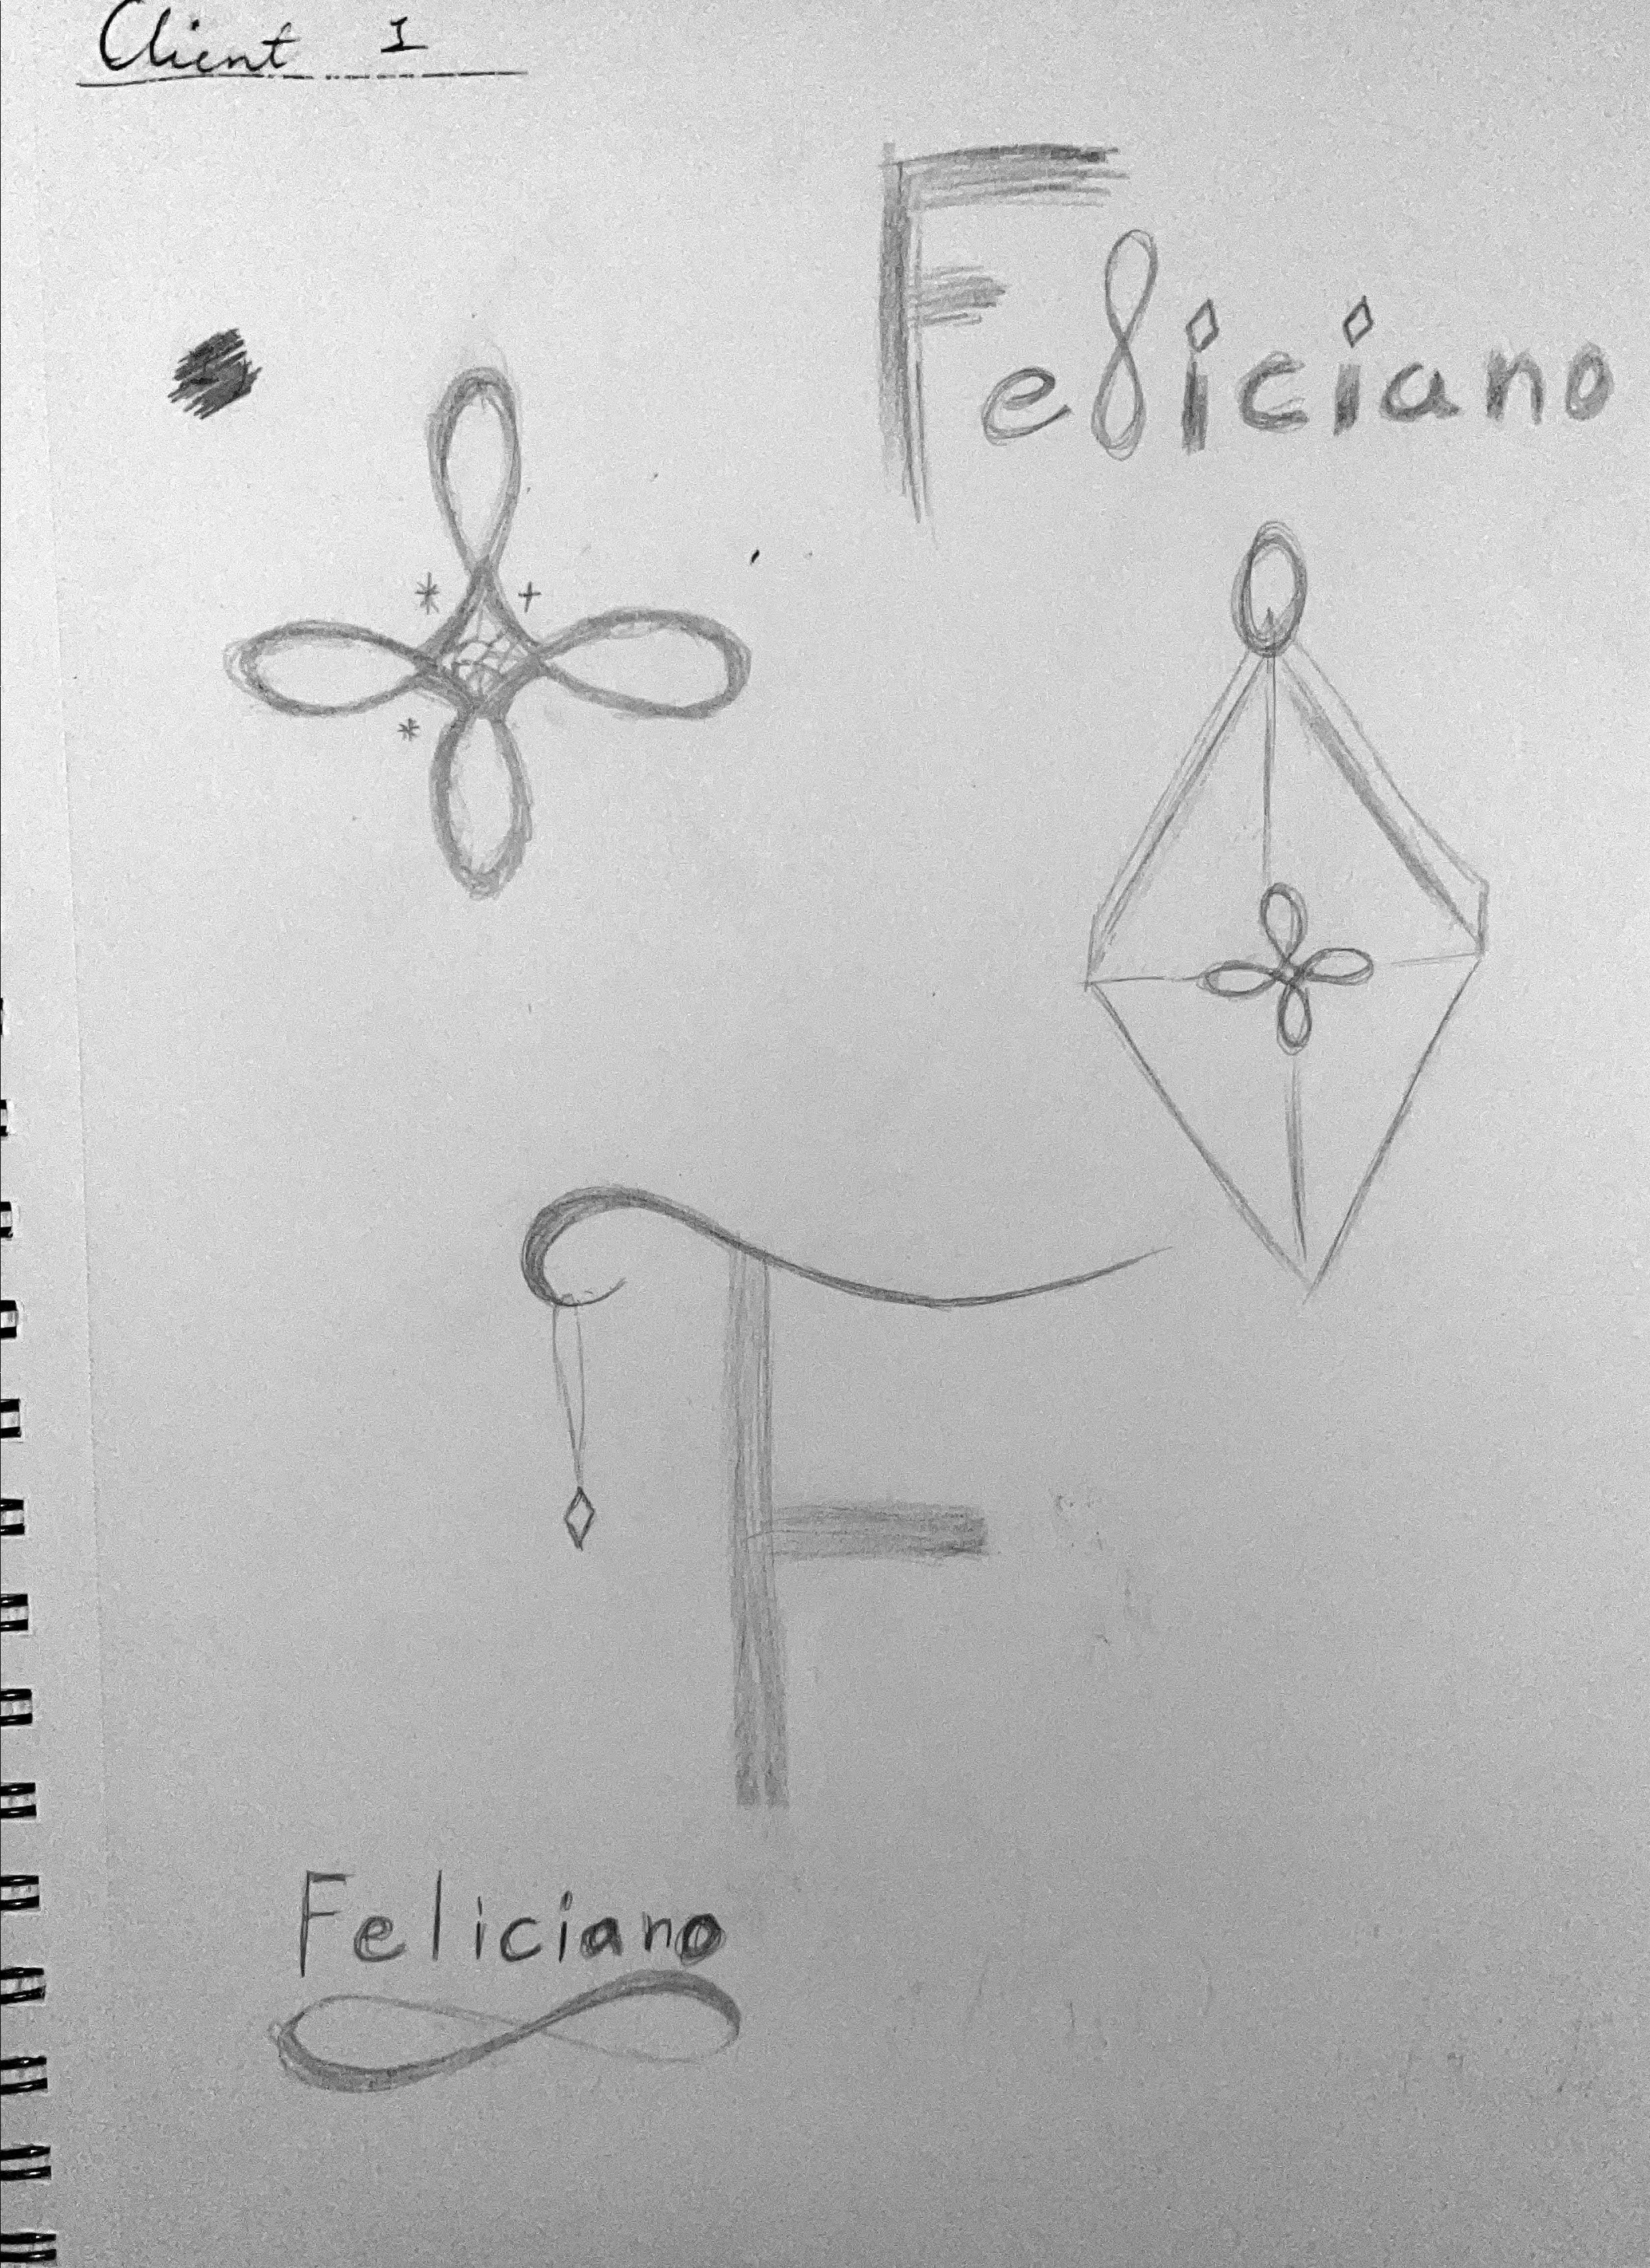 Client 1
Feliciano
F
Feliciano